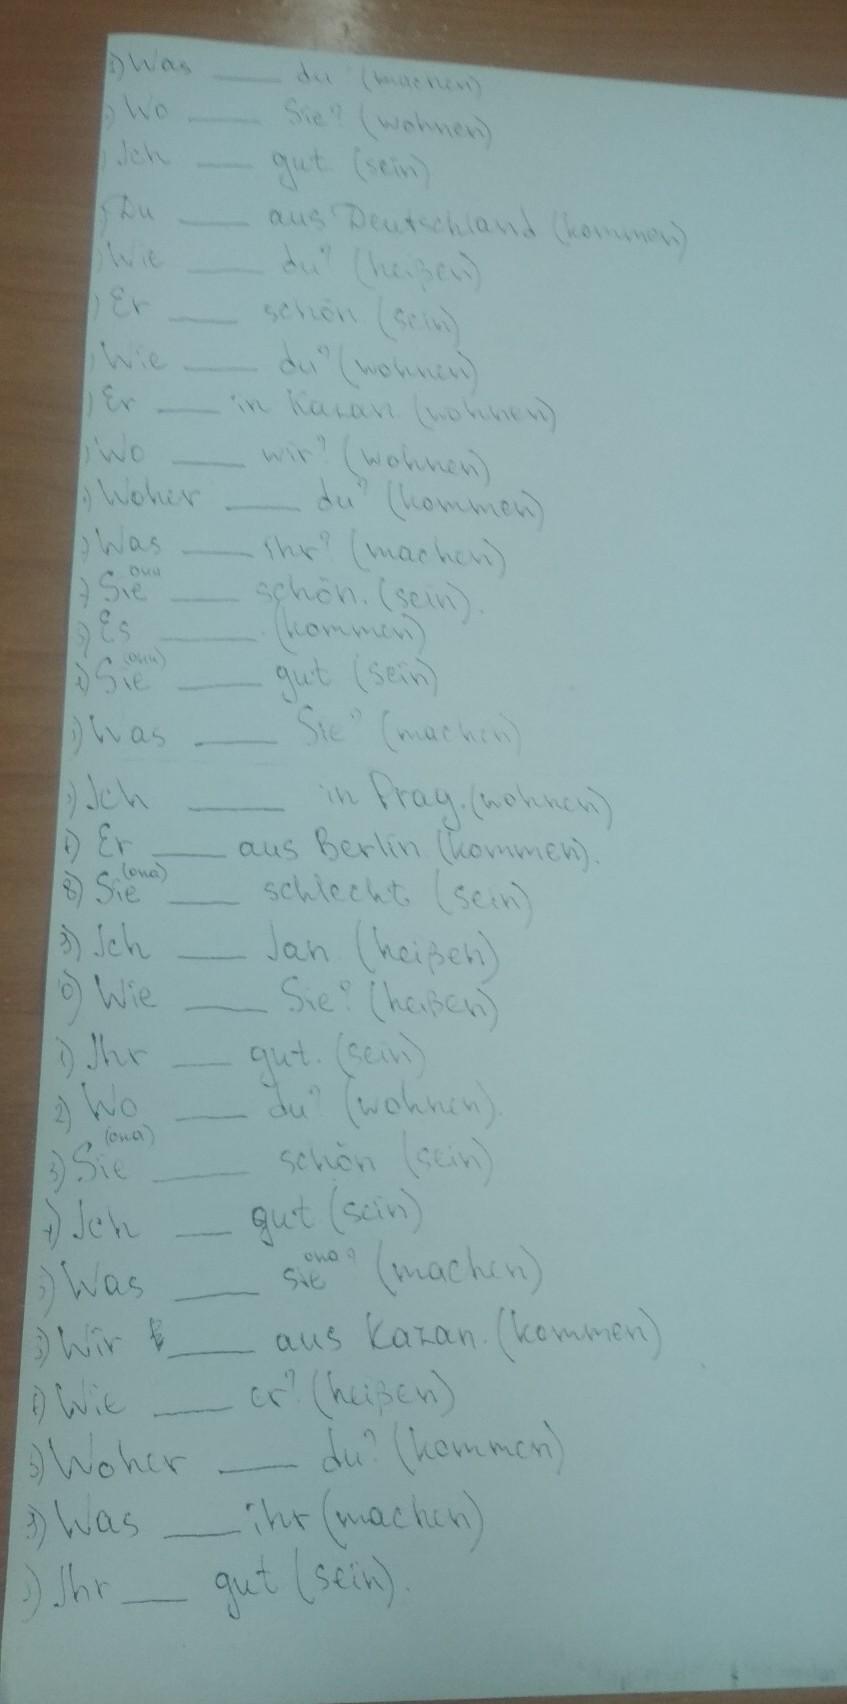 1) Was ___ du? (machen)
) Wo ___ Sie? (wohnen)
) Ich ___ gut (sein)
) Du ___ aus Deutschland (kommen)
) Wie ___ du? (heißen)
) Er ___ schön (sein)
) Wie ___ du? (wohnen)
) Er ___ in Kazan (wohnen)
) Wo ___ wir? (wohnen)
) Woher ___ du? (kommen)
) Was ___ ihr? (machen)
) Sie (они) ___ schön. (sein).
) Es ___. (kommen)
) Sie (они) ___ gut (sein)
) Was ___ Sie? (machen)
) Ich ___ in Prag. (wohnen)
) Er ___ aus Berlin (kommen).
8) Sie (она) ___ schlecht (sein)
9) Ich ___ Jan (heißen)
0) Wie ___ Sie? (heißen)
1) Ihr ___ gut. (sein)
2) Wo ___ du? (wohnen).
3) Sie (она) ___ schön (sein)
4) Ich ___ gut (sein)
) Was ___ sie (она?) (machen)
) Wir ___ aus Kazan. (kommen)
) Wie ___ er? (heißen)
) Woher ___ du? (kommen)
9) Was ___ ihr (machen)
) Ihr ___ gut (sein).